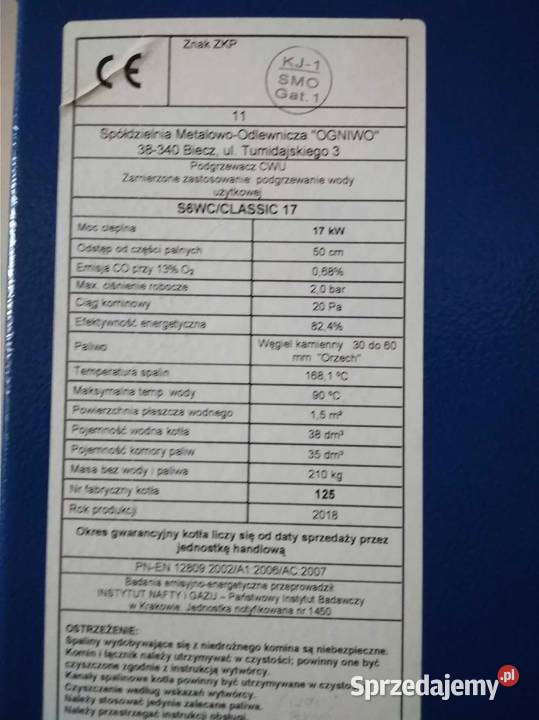 CE
Znak ZKP
KJ-1
SMO
Gat.1
11
Spółdzielnia Metalowo-Odlewnicza "OGNIWO"
38-340 Biecz, ul. Tumidajskiego 3
Podgrzewacz CWU
Zamierzone zastosowanie: podgrzewanie wody
użytkowej
S6WC/CLASSIC 17
Moc cieplna 17 kW
Odstęp od części palnych 50 cm
Emisja CO przy 13% O₂ 0,68%
Max. ciśnienie robocze 2,0 bar
Ciąg kominowy 20 Pa
Efektywność energetyczna 82,4%
Paliwo Węgiel kamienny 30 do 60
mm "Orzech"
Temperatura spalin 168,1 ºC
Maksymalna temp. wody 90 ºC
Powierzchnia płaszcza wodnego 1,5 m²
Pojemność wodna kotła 38 dm³
Pojemność komory paliw 35 dm³
Masa bez wody i paliwa 210 kg
Nr fabryczny kotła 125
Rok produkcji 2018
Okres gwarancyjny kotła liczy się od daty sprzedaży przez
jednostkę handlową
PN-EN 12809:2002/A1:2006/AC:2007
Badania emisyjno-energetyczne przeprowadził
INSTYTUT NAFTY i GAZU – Państwowy Instytut Badawczy
w Krakowie. Jednostka notyfikowana nr 1450
OSTRZEŻENIE:
Spaliny wydobywające się z niedrożnego komina są niebezpieczne.
Komin i łącznik należy utrzymywać w czystości; powinny one być
czyszczone zgodnie z instrukcją wytwórcy.
Kanały spalinowe kotła powinny być utrzymywane w czystości
Czyszczenie według wskazań wytwórcy.
Należy stosować jedynie zalecane paliwa.
Należy przestrzegać instrukcji obsługi
Sprzedajemy.pl